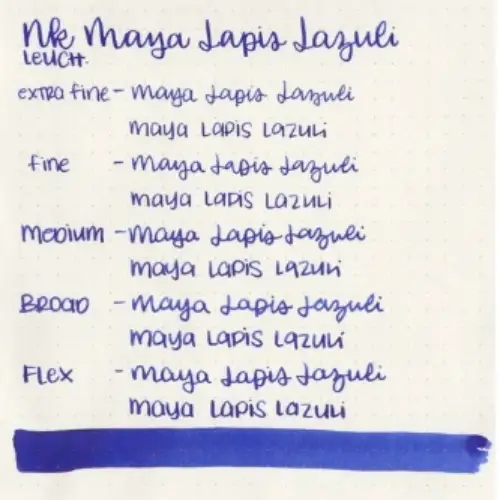 Nk Maya Lapis Lazuli
LEUCHT.
extra fine - Maya Lapis Lazuli
maya LAPIS LAZULI
fine - Maya Lapis Lazuli
maya LAPIS LAZULI
MEDIUM - Maya Lapis Lazuli
maya LAPIS LAZULI
BROAD - Maya Lapis Lazuli
maya LAPIS LAZULI
FLEX - Maya Lapis Lazuli
maya LAPIS LAZULI